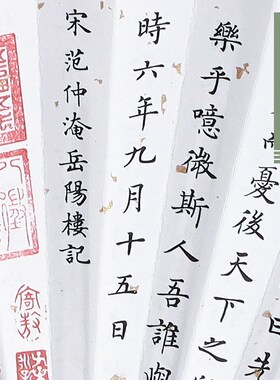 曰先
而憂後天下之
樂乎噫微斯人吾誰與
時六年九月十五日
宋范仲淹岳陽樓記